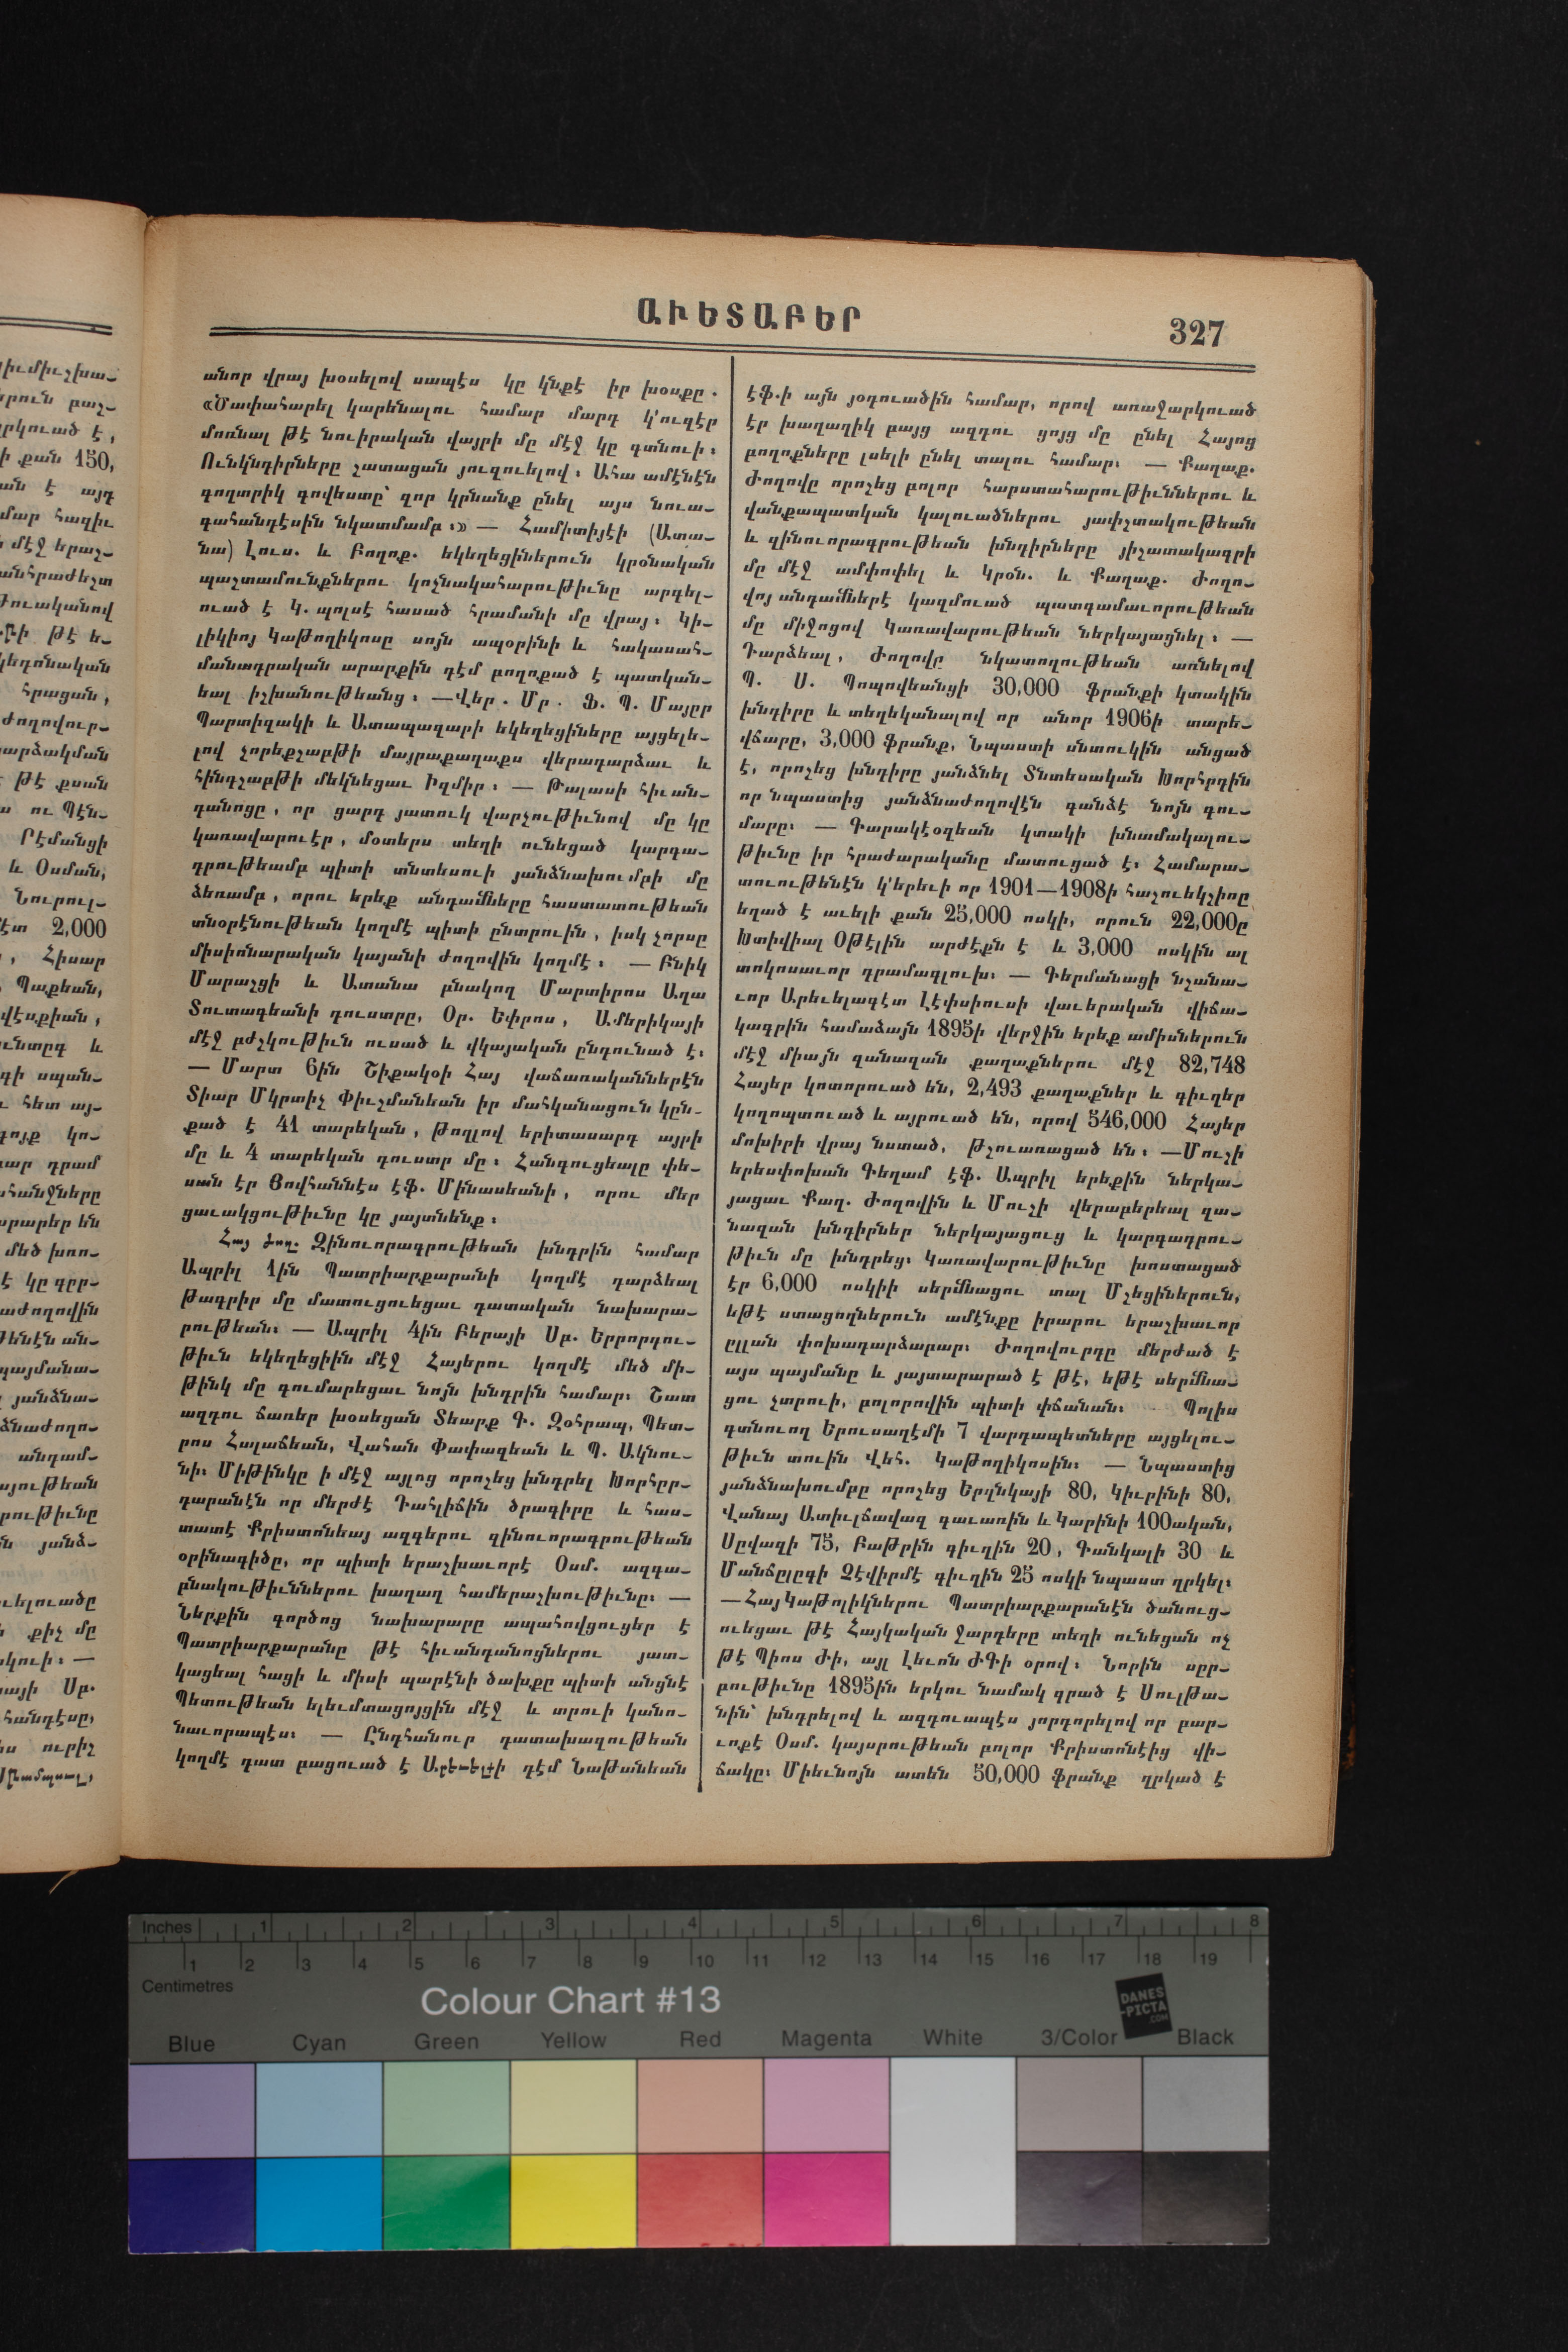 ԱՒԵՏԱԲԵՐ
327
անոր վրայ խօսելով սապէս կը կնքէ իր խօսքը.
«Ծափահարել կարենալու համար մարդ կ'ուզէր
մոռնալ թէ նուիրական վայրի մը մէջ կը գտնուի։
Ունկնդիրները չատացան յուզուելով։ Ահա ամէնէն
գողտրիկ գովեստը՝ զոր կրնանք ընել այս նուա-
գահանդէսին նկատմամբ։» — Համիտիյէի (Ատա-
նա) Լուս. և Բողոք. եկեղեցիներուն կրօնական
պաշտամունքներու կոչնակահարութիւնը արդել-
ուած է Կ. պոլսէ հասած հրամանի մը վրայ։ Կի-
լիկիոյ Կաթողիկոսը սոյն ապօրինի և հակասահ-
մանադրական արարքին դէմ բողոքած է պատկան-
եալ իշխանութեանց։ —Վեր. Մր. Ֆ. Պ. Մայըր
Պարտիզակի և Ատապազարի եկեղեցիները այցելե-
լով չորեքշաբթի մայրաքաղաքս վերադարձաւ և
հինգշաբթի մեկնեցաւ Իզմիր։ — Թալասի հիւան-
դանոցը, որ ցարդ յատուկ վարչութիւնով մը կը
կառավարուէր, մօտերս տեղի ունեցած կարգա-
դրութեամբ պիտի տնտեսուի յանձնախումբի մը
ձեռամբ, որու երեք անդամները հաստատութեան
տնօրէնութեան կողմէ պիտի ընտրուին, իսկ չորսը
միսիոնարական կայանի ժողովին կողմէ։ — Բնիկ
Մարաշցի և Ատանա բնակող Մարտիրոս Աղա
Տուտագեանի դուստրը, Օր. Եփրոս, Ամերիկայի
մէջ բժշկութիւն ուսած և վկայական ընդունած է։
— Մարտ 6ին Շիքակօի Հայ վաճառականներէն
Տիար Մկրտիչ Փիւշմանեան իր մահկանացուն կըն-
քած է 41 տարեկան, թողլով երիտասարդ այրի
մը և 4 տարեկան դուստր մը։ Հանգուցեալը փե-
սան էր Յովհաննէս էֆ. Մինասեանի, որու մեր
ցաւակցութիւնը կը յայտնենք։
Հայ ժող. Զինուորագրութեան խնդրին համար
Ապրիլ 1ին Պատրիարքարանի կողմէ դարձեալ
թագրիր մը մատուցուեցաւ դատական նախարա-
րութեան։ — Ապրիլ 4ին Բերայի Սբ. Երրորդու-
թիւն եկեղեցիին մէջ Հայերու կողմէ մեծ մի-
թինկ մը գումարեցաւ նոյն խնդրին համար։ Շատ
ազդու ճառեր խօսեցան Տեարք Գ. Զօհրապ, Պետ-
րոս Հալաճեան, Վահան Փափազեան և Պ. Ակնու-
նի։ Միթինկը ի մէջ այլոց որոշեց խնդրել Խորհըր-
դարանէն որ մերժէ Դահլիճին ծրագիրը և հաս-
տատէ Քրիստոնեայ ազգերու զինուորագրութեան
օրինագիծը, որ պիտի երաշխաւորէ Օսմ. ազգա-
բնակութիւններու խաղաղ համերաշխութիւնը։ —
Ներքին գործոց նախարարը ապահովցուցեր է
Պատրիարքարանը թէ հիւանդանոցներու յատ-
կացեալ հացի և միսի պարէնի ծախքը պիտի անցնէ
Պետութեան ելեւմտացոյցին մէջ և տրուի կանո-
նաւորապէս։ — Ընդհանուր դատախազութեան
կողմէ դատ բացուած է Արեւելքի դէմ Նաթանեան
էֆ.ի այն յօդուածին համար, որով առաջարկուած
էր խաղաղիկ բայց ազդու ցոյց մը ընել Հայոց
բողոքները լսելի ընել տալու համար։ — Քաղաք.
Ժողովը որոշեց բոլոր հարստահարութիւններու և
վանքապատկան կալուածներու յափշտակութեան
և զինուորագրութեան խնդիրները յիշատակագրի
մը մէջ ամփոփել և Կրօն. և Քաղաք. Ժողո-
վոյ անդամներէ կազմուած պատգամաւորութեան
մը միջոցով Կառավարութեան ներկայացնել։ —
Դարձեալ, Ժողովը նկատողութեան առնելով
Պ. Ս. Պոպովեանցի 30,000 ֆրանքի կտակին
խնդիրը և տեղեկանալով որ անոր 1906ի տարե-
վճարը, 3,000 ֆրանք, Նպաստի սնտուկին անցած
է, որոշեց խնդիրը յանձնել Տնտեսական Խորհրդին
որ նպաստից յանձնաժողովէն գանձէ նոյն գու-
մարը։ — Գարակէօզեան կտակի խնամակալու-
թիւնը իր հրաժարականը մատուցած է։ Համարա-
տուութենէն կ'երեւի որ 1901—1908ի հաշուեկշիռը
եղած է աւելի քան 25,000 ոսկի, որուն 22,000ը
Խտիվիալ Օթէլին արժէքն է և 3,000 ոսկին ալ
տոկոսաւոր դրամագլուխ։ — Գերմանացի նշանա-
ւոր Արեւելագէտ Լէփսիուսի վաւերական վիճա-
կագրին համաձայն 1895ի վերջին երեք ամիսներուն
մէջ միայն զանազան քաղաքներու մէջ 82,748
Հայեր կոտորուած են, 2,493 քաղաքներ և գիւղեր
կողոպտուած և այրուած են, որով 546,000 Հայեր
մոխիրի վրայ նստած, թշուառացած են։ —Մուշի
երեսփոխան Գեղամ էֆ. Ապրիլ երեքին ներկա-
յացաւ Քաղ. Ժողովին և Մուշի վերաբերեալ զա-
նազան խնդիրներ ներկայացուց և կարգադրու-
թիւն մը խնդրեց։ Կառավարութիւնը խոստացած
էր 6,000 ոսկիի սերմնացու տալ Մշեցիներուն,
եթէ ստացողներուն ամէնքը իրարու երաշխաւոր
ըլլան փոխադարձաբար։ Ժողովուրդը մերժած է
այս պայմանը և յայտարարած է թէ, եթէ սերմնա-
ցու չտրուի, բոլորովին պիտի փճանան։ Պոլիս
գտնուող Երուսաղէմի 7 վարդապետները այցելու-
թիւն տուին Վեհ. Կաթողիկոսին։ — Նպաստից
յանձնախումբը որոշեց Երզնկայի 80, Կիւրինի 80,
Վանայ Ատիլճավազ գաւառին և Կարինի 100ական,
Սըվազի 75, Բաթրին գիւղին 20, Գանկալի 30 և
Մանճըլըգի Չէվիրմէ գիւղին 25 ոսկի նպաստ ղրկել։
—Հայ Կաթոլիկներու Պատրիարքարանէն ծանուց-
ուեցաւ թէ Հայկական ջարդերը տեղի ունեցան ոչ
թէ Պիոս Ժի, այլ Լեւոն ԺԳի օրով։ Նորին սըր-
բութիւնը 1895ին երկու նամակ գրած է Սուլթա-
նին՝ խնդրելով և ազդուապէս յորդորելով որ բար-
ւոքէ Օսմ. կայսրութեան բոլոր Քրիստոնէից վի-
ճակը։ Միեւնոյն ատեն 50,000 ֆրանք ղրկած է
Inches 1 2 3 4 5 6 7 8
1 2 3 4 5 6 7 8 9 10 11 12 13 14 15 16 17 18 19
Centimetres
Colour Chart #13
DANES
-PICTA
.COM
Blue Cyan Green Yellow Red Magenta White 3/Color Black